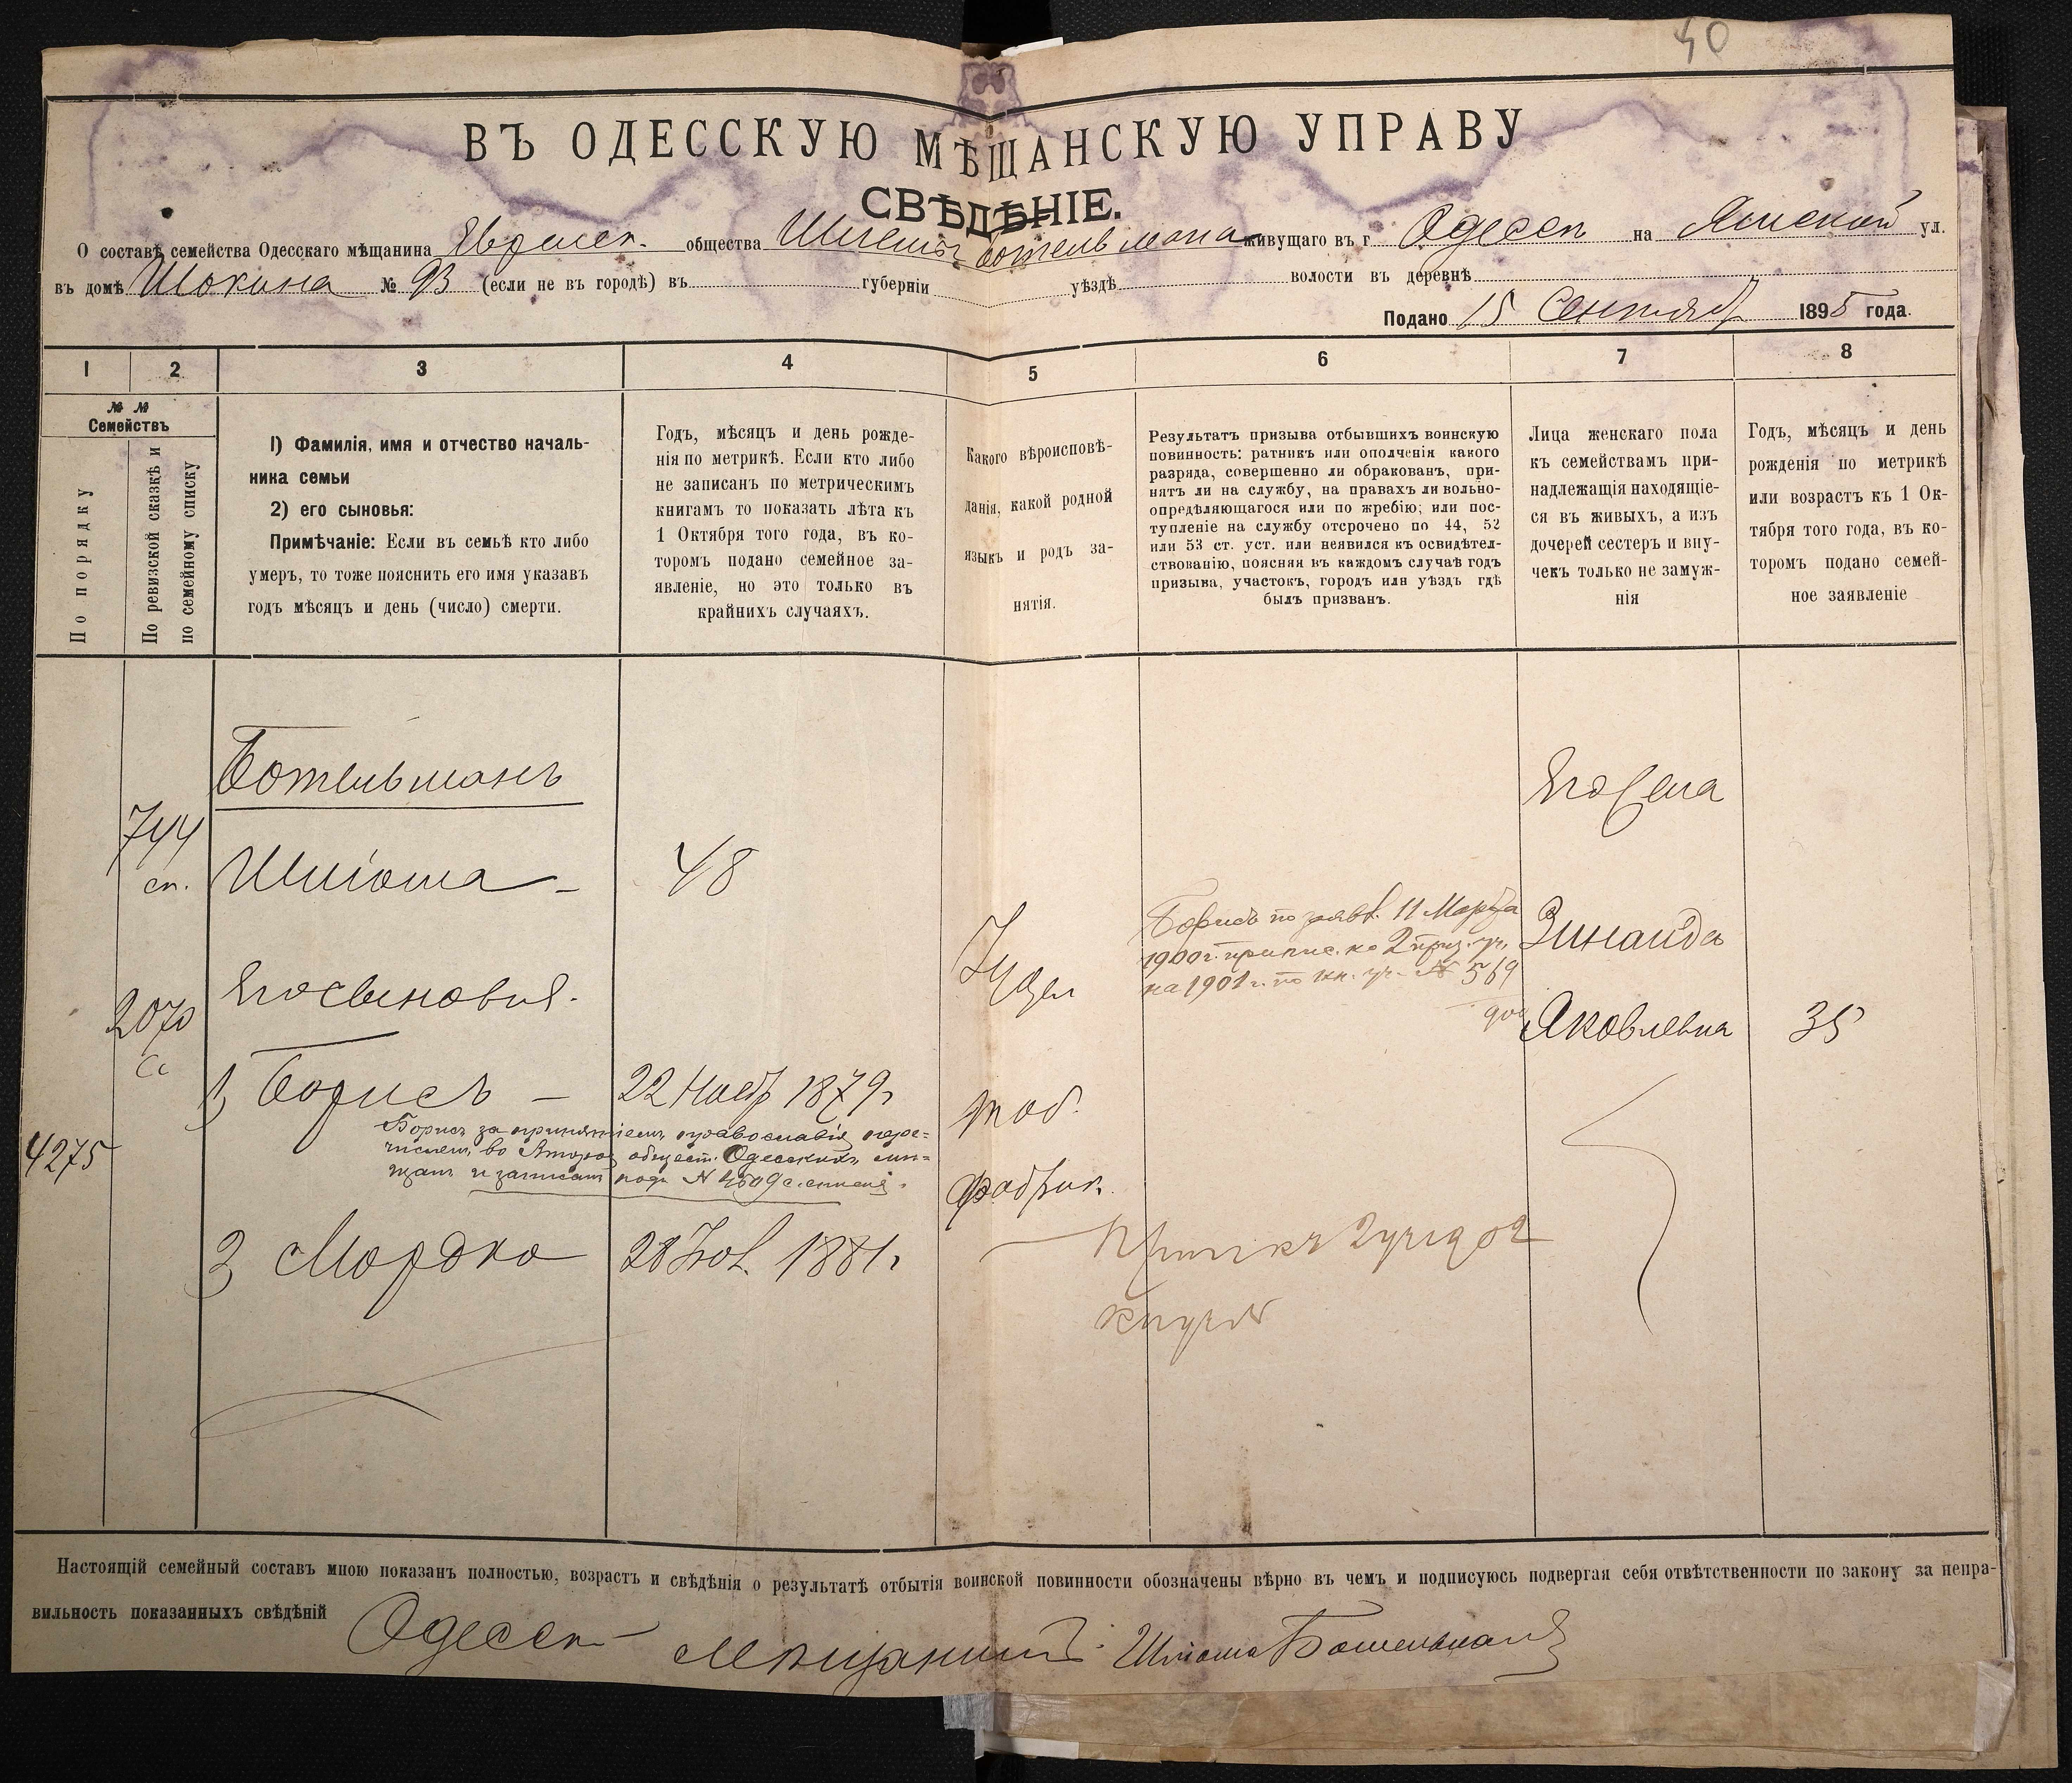 40
ВЪ ОДЕССКУЮ МѢЩАНСКУЮ УПРАВУ
СВѢДѢНІЕ.
О составѣ семейства Одесскаго мѣщанина Еврейск. общества Шліомы Ботельмана живущаго въ г Одессѣ на Ямской ул.
въ домѣ Шокина № 93 (если не въ городѣ) въ губерніи уѣздѣ волости въ деревнѣ
Подано 15 Сентябр 1895 года.
1 2 3 4 5 6 7 8
№ №
Семействъ
По порядку
По ревизской сказкѣ и
по семейному списку
1) Фамилія, имя и отчество началь-
ника семьи
2) его сыновья:
Примѣчаніе: Если въ семьѣ кто либо
умеръ, то тоже пояснить его имя указавъ
годъ мѣсяцъ и день (число) смерти.
Годъ, мѣсяцъ и день рожде-
нія по метрикѣ. Если кто либо
не записанъ по метрическимъ
книгамъ то показать лѣта къ
1 Октября того года, въ ко-
торомъ подано семейное за-
явленіе, но это только въ
крайнихъ случаяхъ.
Какого вѣроисповѣ-
данія, какой родной
языкъ и родъ за-
нятія.
Результатъ призыва отбывшихъ воинскую
повинность: ратникъ или ополченія какого
разряда, совершенно ли обракованъ, при-
нятъ ли на службу, на правахъ ли вольно-
опредѣляющагося или по жребію; или пос-
тупленіе на службу отсрочено по 44, 52
или 53 ст. уст. или неявился къ освидѣтел-
ствованію, поясняя въ каждомъ случаѣ годъ
призыва, участокъ, городъ или уѣздъ гдѣ
былъ призванъ.
Лица женскаго пола
къ семействамъ при-
надлежащія находящіе-
ся въ живыхъ, а изъ
дочерей сестеръ и вну-
чекъ только не замуж-
нія
Годъ, мѣсяцъ и день
рожденія по метрикѣ
или возрастъ къ 1 Ок-
тября того года, въ ко-
торомъ подано семей-
ное заявленіе
Ботельманъ
Его жена
744
сп.
Шліома - 48
Іудей
Борисъ по заявл. 11 Марта
1900 г. припис. къ 2 приз. уч.
на 1901 г. по кн. уч. № 569
900
Зинаида
2070
Сс
Іосьиновичъ.
Яковлевна 35
1) Борисъ - 22 Нояб 1879 г
таб.
Борисъ за принятіемъ православія пере=
численъ во Второе общест. Одесскихъ мѣ=
щанъ и записанъ подъ № 4609 с. списка.
4275
фабрик.
2 Мордко 28 Нов. 1881 г
Прип къ 2 уч. 902
кн уч №
Настоящій семейный составъ мною показанъ полностью, возрастъ и свѣдѣнія о результатѣ отбытія воинской повинности обозначены вѣрно въ чемъ и подписуюсь подвергая себя отвѣтственности по закону за непра-
вильность показанныхъ свѣдѣній Одесск мѣщанинъ Шліома Ботельманъ